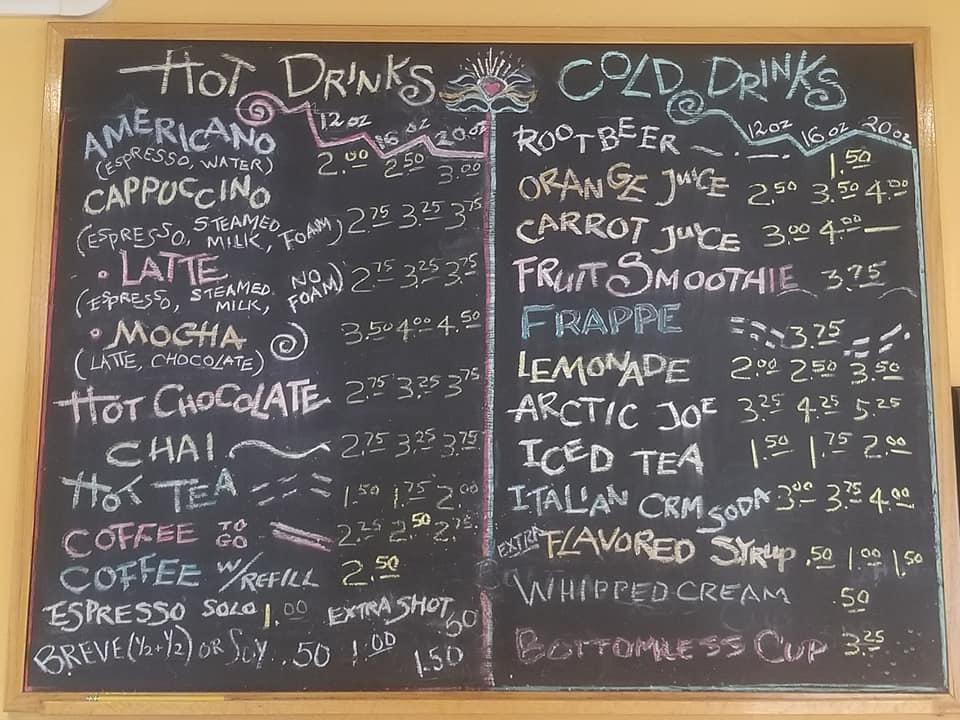 HOT DRINKS
12 oz 16 oz 20 oz
AMERICANO 2.00 2.50 3.00
(ESPRESSO, WATER)
CAPPUCCINO
(ESPRESSO, STEAMED MILK, FOAM) 2.75 3.25 3.75
• LATTE
(ESPRESSO, STEAMED MILK, NO FOAM) 2.75 3.25 3.75
• MOCHA 3.50 4.00 4.50
(LATTE, CHOCOLATE)
HOT CHOCOLATE 2.75 3.25 3.75
CHAI 2.75 3.25 3.75
HOT TEA 1.50 1.75 2.00
COFFEE TO GO 2.25 2.50 2.75
COFFEE W/REFILL 2.50
ESPRESSO SOLO 1.00 EXTRA SHOT .50
BREVE (½+½) OR SOY .50 1.00 1.50
COLD DRINKS
12 oz 16 oz 20 oz
ROOTBEER 1.50
ORANGE JUICE 2.50 3.50 4.00
CARROT JUICE 3.00 4.00 —
FRUIT SMOOTHIE 3.75
FRAPPE 3.75
LEMONADE 2.00 2.50 3.50
ARCTIC JOE 3.25 4.25 5.25
ICED TEA 1.50 1.75 2.00
ITALIAN CRM SODA 3.00 3.75 4.00
EXTRA FLAVORED SYRUP .50 1.00 1.50
WHIPPED CREAM .50
BOTTOMLESS CUP 3.25